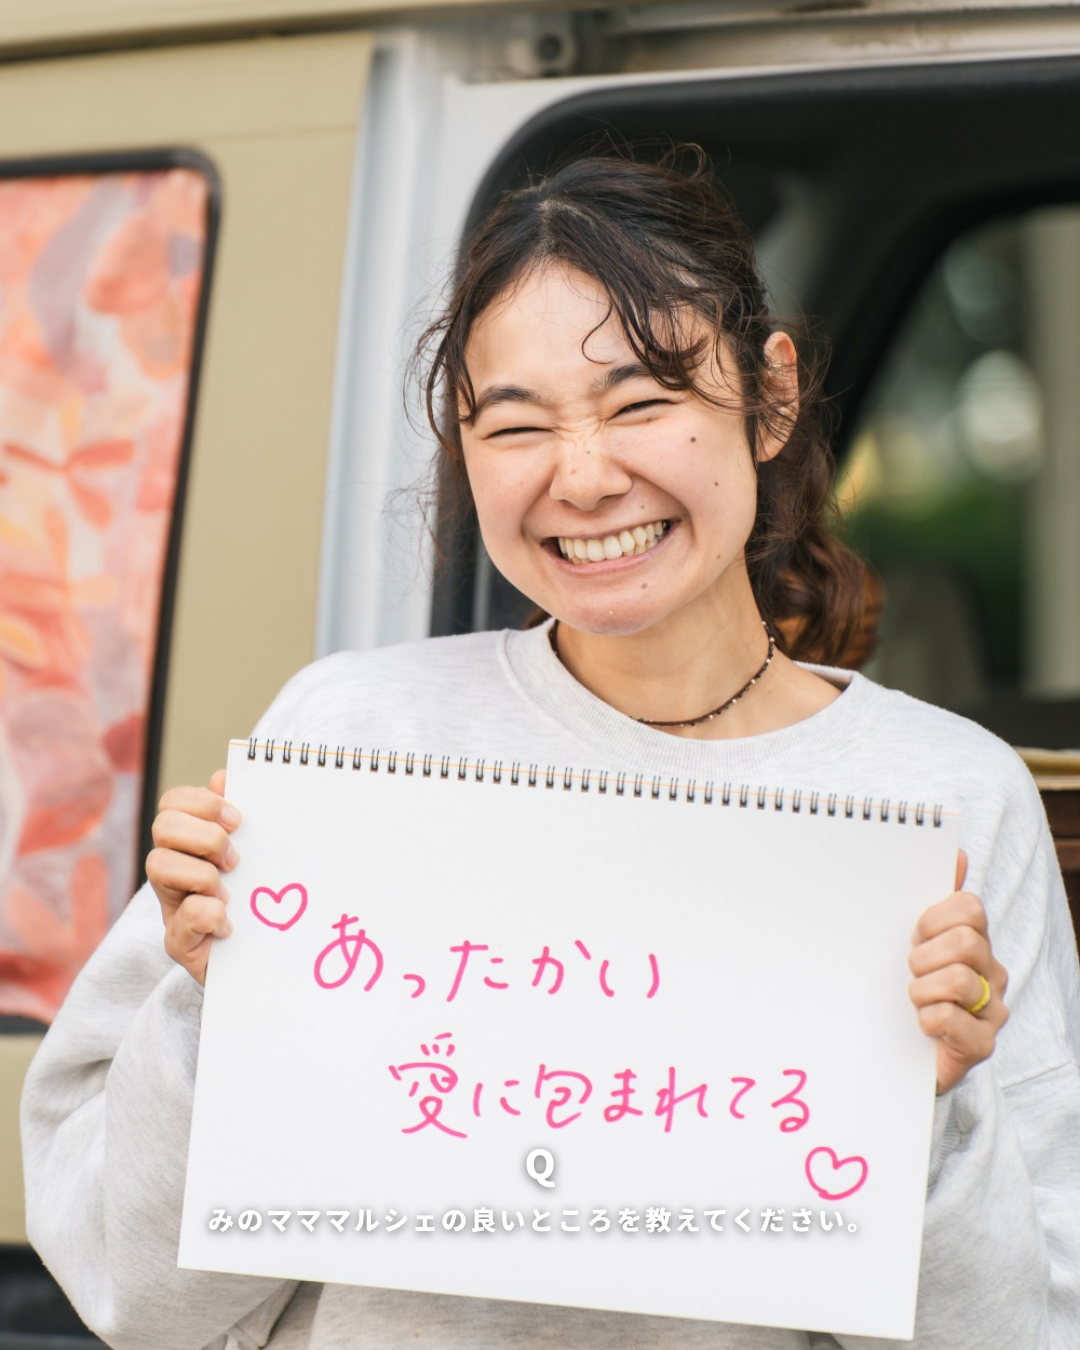 あったかい
愛に包まれてる
Q
みのママルシェの良いところを教えてください。